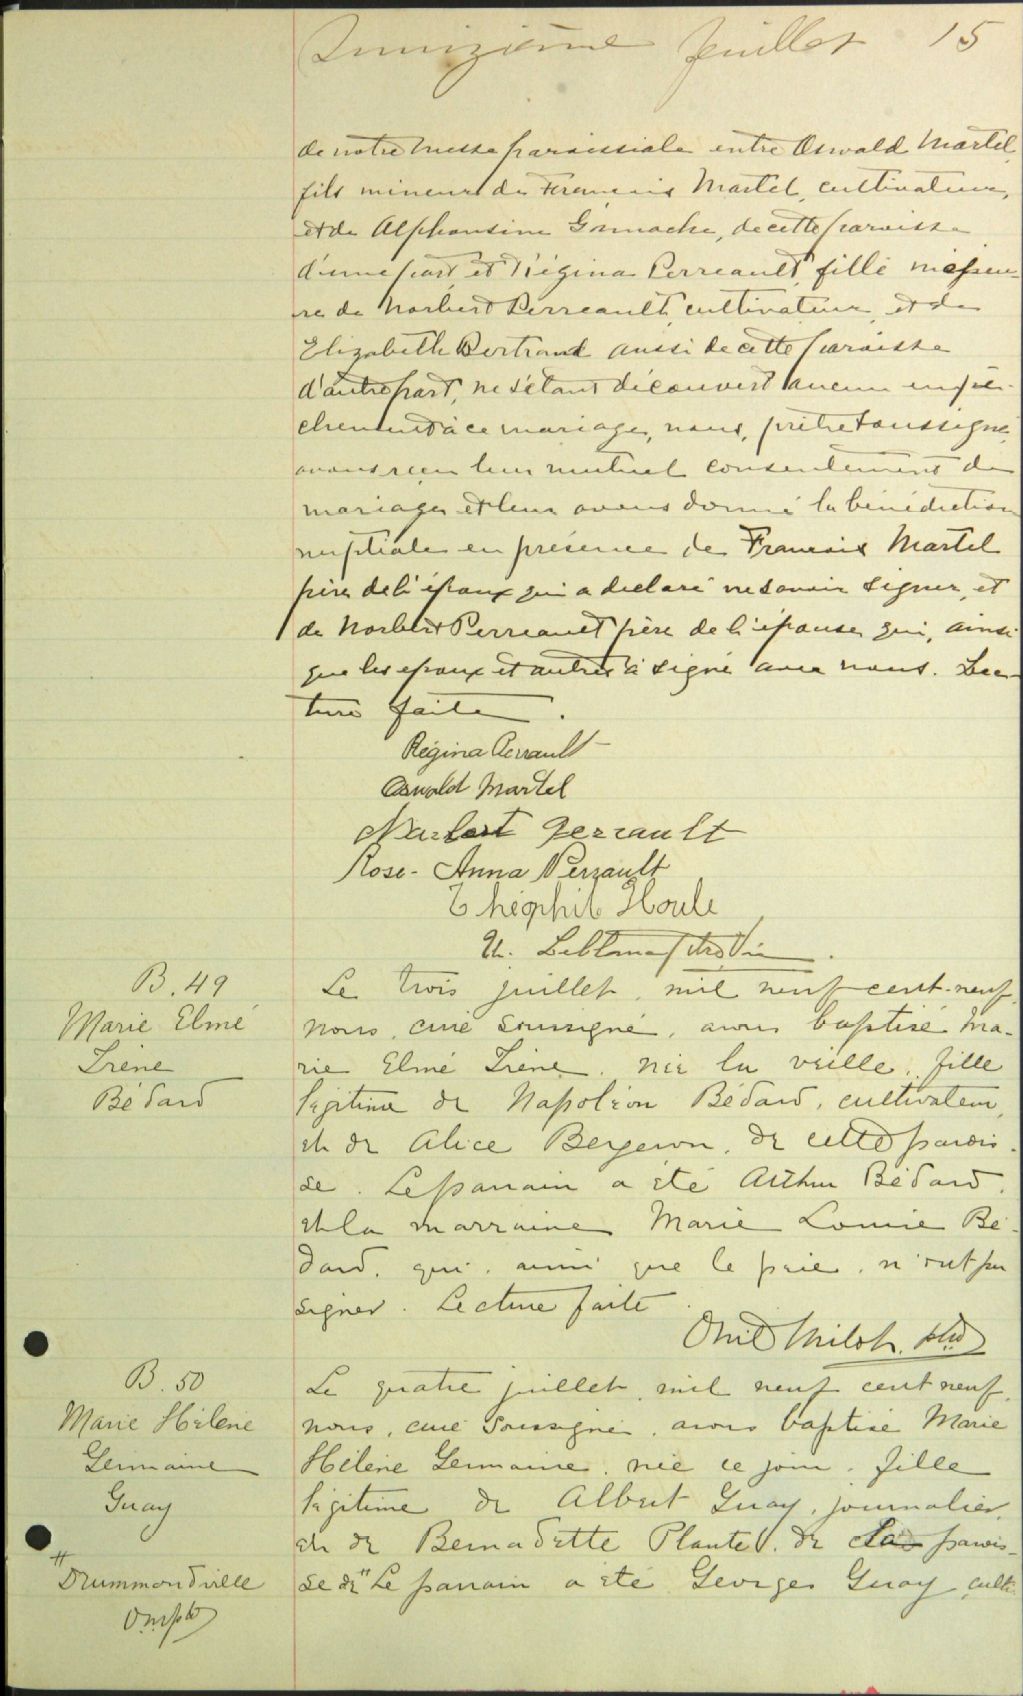 Quinzième feuillet 15
de notre messe paroissiale entre Oswald Martel,
fils mineur de Francois Martel, cultivateur,
et de Alphonsine Gamache, de cette paroisse
d'une part et Régina Perreault, fille mineu-
re de Norbert Perreault, cultivateur, et de
Elizabeth Bertrand aussi de cette paroisse
d'autre part, ne s'étant découvert aucun empê-
chement à ce mariage, nous, prêtre soussigné,
avons reçu leur mutuel consentement de
mariage et leur avons donné la bénédiction
nuptiale en présence de Francois Martel
père de l'époux qui a déclaré ne savoir signer, et
de Norbert Perreault père de l'épouse qui, ainsi
que les epoux et autres a signé avec nous. Lec-
ture faite.
Régina Perrault
Oswald Martel
Narbert Perrault
Rose-Anna Perrault
Théophile Houle
Leblanc ptre Vic.
B. 49
Marie Elmé
Irène
Bédard
Le trois juillet, mil neuf cent-neuf,
nous, curé soussigné, avons baptisé Ma-
rie Elmé Irène, née la veille, fille
légitime de Napoléon Bédard, cultivateur,
et de Alice Bergeron, de cette parois-
se. Le parrain a été Arthur Bédard,
et la marraine Marie Louise Bé-
dard, qui, ainsi que le père, n'ont pu
signer. Lecture faite.
Milot, ptre
B. 50
Marie Hélène
Germaine
Guay
Le quatre juillet, mil neuf cent neuf,
nous, curé soussigné, avons baptisé Marie
Hélène Germaine, née ce jour, fille
légitime de Albert Guay, journalier,
et de Bernadette Plante, de la parois-
se de " Le parrain a été Georges Guay, culti-
" Drummondville